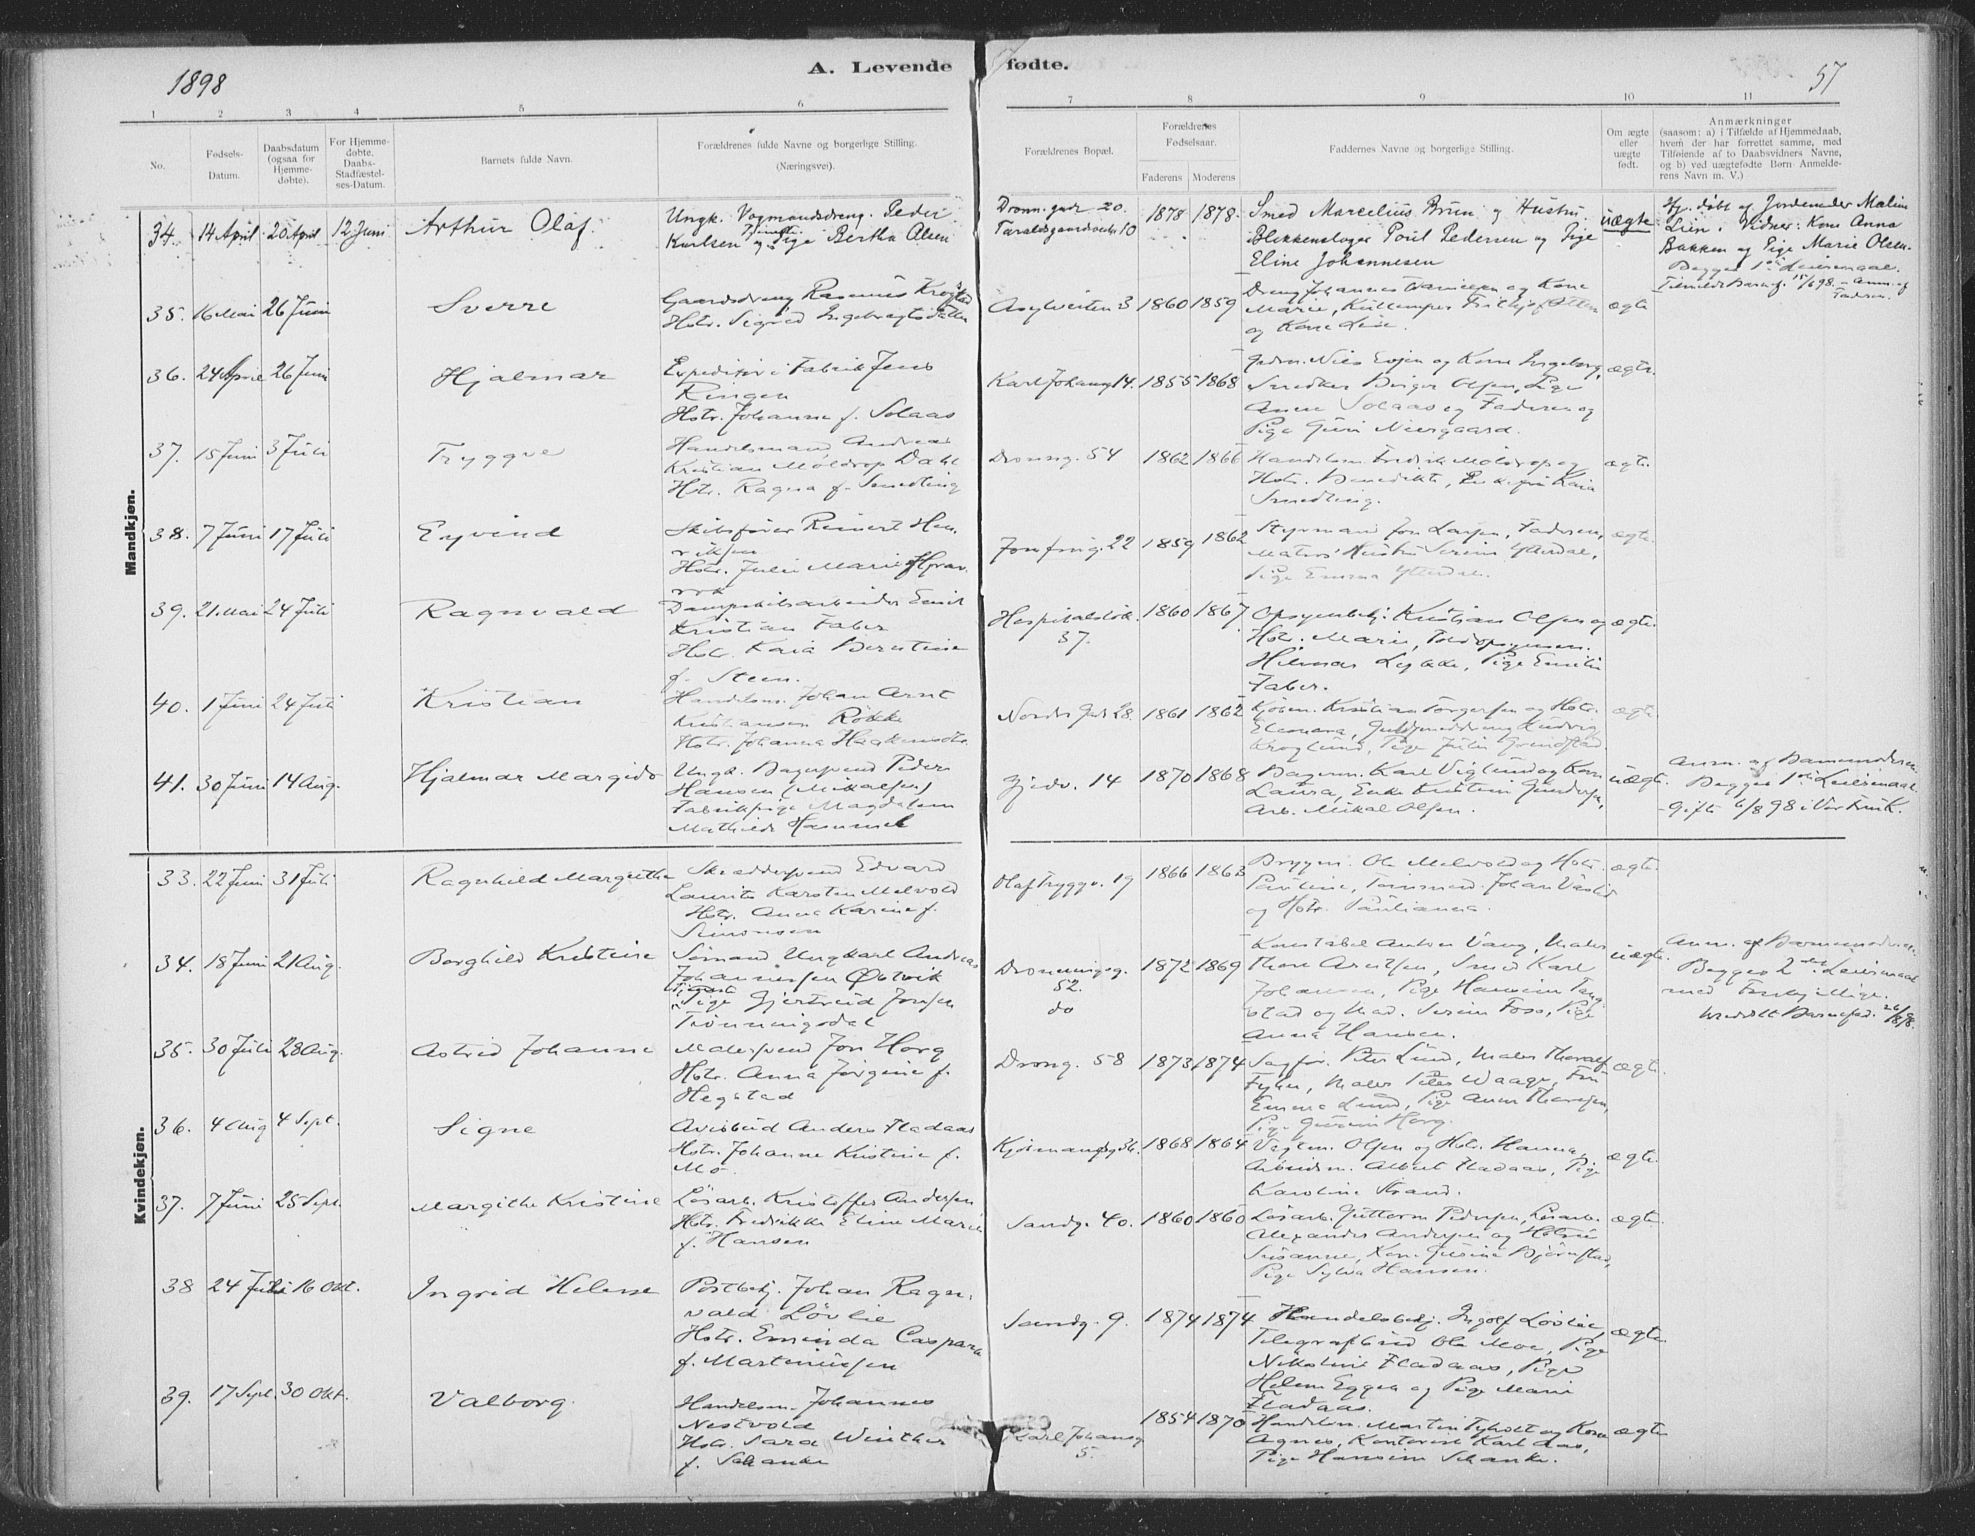 1898
A. Levende fødte.
57
1 2 3 4 5 6 7 8 9 10 11
No.
Fødsels-Datum.
Daabsdatum (ogsaa for Hjemme-døbte).
For Hjemme-døbte. Daabs-Stadfæstel-ses-Datum.
Barnets fulde Navn.
Forældrenes fulde Navne og borgerlige Stilling.
(Næringsvei).
Forældrenes Bopæl.
Forældrenes Fødselsaar.
Faderens Moderens
Faddernes Navne og borgerlige Stilling.
Om ægte eller uægte født.
Anmærkninger
(saasom: a) i Tilfælde af Hjemmedaab,
hvem der har forrettet samme, med
Tilføiende af to Daabsvidners Navne,
og b) ved uægtefødte Børn Anmelde-
rens Navn m. V.)
Mandkjøn.
34. 14 April 20 April 12 Juni Arthur Olaf.
Ungk. Vognmandsdreng. Peder
Karlsen og Pige Bertha Olsen
Dronn. gade 20.
10
1878 1878.
Smed Marcelius Bruun og Hustru.
Blikkenslager Poul Pedersen og Pige
Eline Johannesen
uægte.
Hj. døbt af Jordemoder Malin
Lien. Vidner: Kone Anna
Bakken og Pige Marie Olsen.
Begges 1ste Leiermaal.
35. 16 Mai 26 Juni Sverre
Gaardsdreng Rasmus
Hstr. Sigrid
Asylveiten 3 1860 1859
Dreng Johannes Danielsen og Kone
Marie,
og Kone Lise.
ægte
36. 24 April 26 Juni Hjalmar
Expeditør i Fabrik Jens
Ringen
Hstr. Johanne f. Solaas
Karl Johansg 14. 1855 1868
Nils og Kone Ingeborg,
Snedker Birger Olsen, Pige
Anne Solaas og Faderen og
Pige Guri Niergaard.
ægte.
37. 15 Juni 3 Juli Tryggve
Handelsmand Andreas
Kristian Moldrop Dahl
Hstr. Ragna f. Smedling
Dronng. 54 1862 1866
Handelsm. Fredrik Moldrop og
Hstr. Benedikte, Enkefru Kaia
Smedling.
ægte.
38. 7 Juni 17 Juli Eyvind
Skibsfører Reinert Hen-
riksen
Hstr. Julie Marie f.
Jomfrug. 22 1859 1862
Styrmand Jon Larsen, Faderen,
Hustru Serine Ytterdal,
Pige Emma Ytterdal.
ægte.
39. 21 Mai 24 Juli Ragnvald
Dampskibsarbeider Emil
Kristian Faber
Hstr. Kaia Berntine
f. Steen.
Hospitalsløk.
37.
1860 1867
Opsynsbetj. Kristian Olsen og
Hstr. Marie, Toldopsynsm.
Hilmar, Pige Emilie
Faber.
ægte.
40. 1 Juni 24 Juli Kristian
Handelsm. Johan Arnt
Kristiansen Røkke
Hstr. Johanna Haakensdtr.
Nordre Gade 28. 1861 1862
Kjøbm. Kristian Torgersen og Hstr.
Eleonora, Guldsmeddreng Ludvig
Kroglund, Pige Julie Grundstad
ægte.
41. 30 Juni 14 Aug. Hjalmar Margido
Ungk. Bagersvend Peder
Hansen (Mikalsen)
Fabrikpige Magdalena
Mathilde Hammer
14 1870 1868
Bagerm. Karl Viglund og Kone
Laura, Enke Kristine Gundersen,
Arb. Mikal Olsen.
uægte.
Anm. af Barnemoderen.
Begges 1ste Leiermaal.
Gifte 6/8 98 i Vor Frue K.
Kvindekjøn.
33. 22 Juni 31 Juli Ragnhild Margrethe
Skræddersvend Edvard
Laurits Karsten Melvold
Hstr. Anna Karine f.
Simonsen
Olaf Tryggv. 19 1866 1863
Bryggem. Ole Melvold og Hstr.
Pauline, Tømmermd. Johan
og Hstr. Pauliana.
ægte.
34. 18 Juni 21 Aug. Borghild Kristine
Sømand Ungkarl Andreas
Johannessen Østvik
Pige Gjertrud Jonsen
Trønningsdal
Dronningsg.
52.
do
1872 1869
Konstabel Anton Vang, Maler
Thore Arntsen, Smed Karl
Johansen, Pige Hansine
og Mad. Serine Foss, Pige
Anna Hansen.
uægte.
Anm. af Barnemoderen.
Begges 2det Leiermaal
med
Meddelt Barnefad. 26/8 98.
35. 30 Juli 28 Aug. Astrid Johanne
Malersvend Jon Horg
Hstr. Anna Jørgine f.
Hegstad
Dronng. 58 1873 1874
Sagfør. Peter Lund, Maler Thoralf
Maler Peter Waage, Fru
Emma Lund, Pige Anna Thoresen,
Pige Gurine Horg.
ægte.
36. 4 Aug 4 Sept. Signe
Avisbud Anders Fladaas
Hstr. Johanne Kristine f.
Mo.
Kjøbmandsg. 36. 1868 1864
Olsen og Hstr. Hanna,
Arbeidsm. Albert Fladaas, Pige
Karoline Strand.
ægte.
37. 7 Juni 25 Sept. Margithe Kristine
Løsarb. Kristoffer Andersen
Hstr. Fredrikke Eline Marie
f. Hansen
Sandg. 40. 1860 1860
Løsarb. Guttorm Pedersen, Løsarb.
Alexander Andersen og Hstr.
Susanne, Kone Gusine Bjørnstad,
Pige Sylva Hansen.
ægte.
38 24 Juli 16 Okt. Ingrid Helene
Postbetj. Johan Ragn-
vald Løvlie
Hstr. Eminda Caspara
f. Martiniusen
Sandg. 9. 1874 1874
Handelsbetj. Ingolf Løvlie,
Telegrafbud Ole Moe, Pige
Nikoline Fladaas, Pige
Helene Eggen og Pige Marie
Fladaas.
ægte.
39. 17 Sept. 30 Okt. Valborg.
Handelsm. Johannes
Nestvold
Hstr. Sara Winther
f. Schanke
Karl Johansg
5.
1854 1870
Handelsm. Martin Tyholt og Kone
Agnes, Kontorist Karl Aas,
Pige Hansine Schanke.
ægte